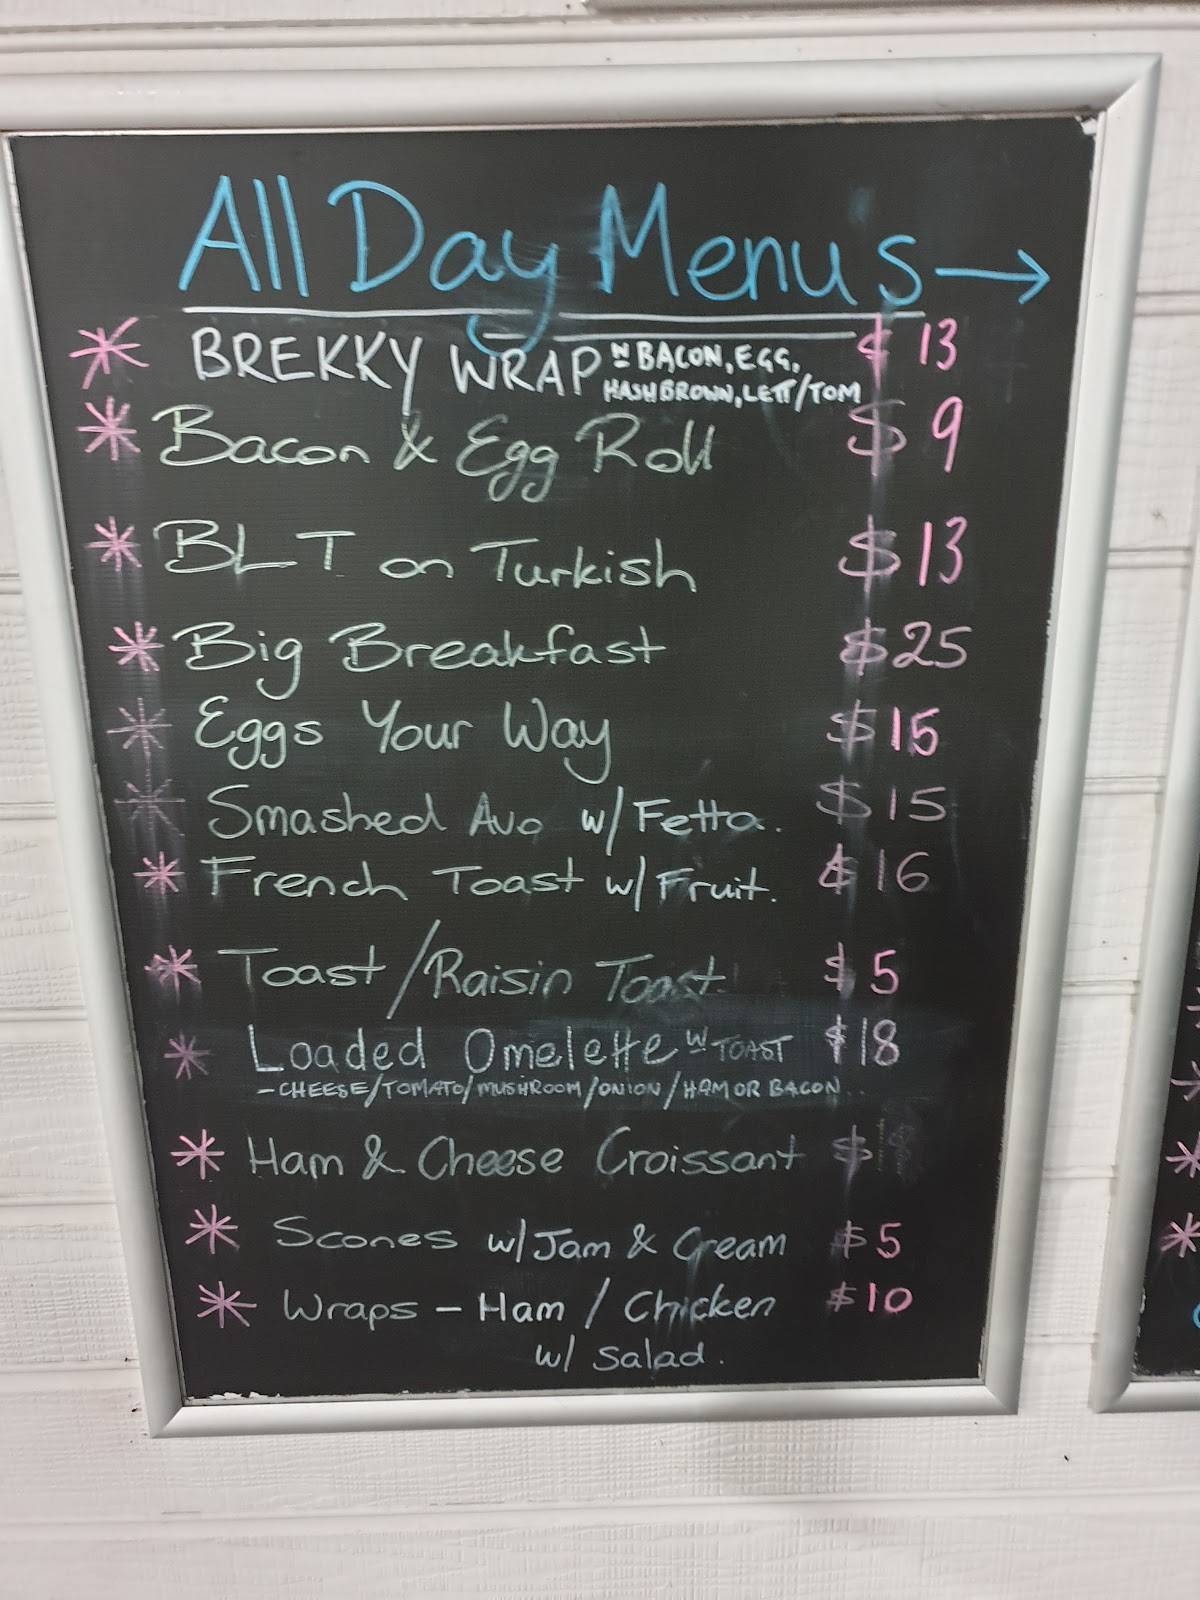 All Day Menus →
* BREKKY WRAP W BACON, EGG, $ 13
HASHBROWN, LETT/TOM
* Bacon & Egg Roll $ 9
* BLT on Turkish $ 13
* Big Breakfast $ 25
* Eggs Your Way $ 15
* Smashed Avo w/ Fetta. $ 15
* French Toast w/ Fruit. $ 16
* Toast/Raisin Toast $ 5
* Loaded Omelette W TOAST $ 18
- CHEESE/TOMATO/MUSHROOM/ONION/HAM OR BACON..
* Ham & Cheese Croissant $
* Scones w/ Jam & Cream $ 5
* Wraps - Ham / Chicken $ 10
w/ salad.